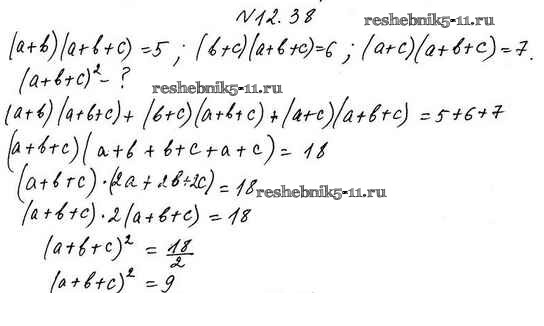 №12.38
reshebnik5-11.ru
(a+b)(a+b+c)=5; (b+c)(a+b+c)=6; (a+c)(a+b+c)=7.
(a+b+c)²-?
reshebnik5-11.ru
(a+b)(a+b+c)+(b+c)(a+b+c)+(a+c)(a+b+c)=5+6+7
(a+b+c)(a+b+b+c+a+c)=18
(a+b+c)·(2a+2b+2c)=18
reshebnik5-11.ru
(a+b+c)·2(a+b+c)=18
(a+b+c)²=18/2
(a+b+c)²=9